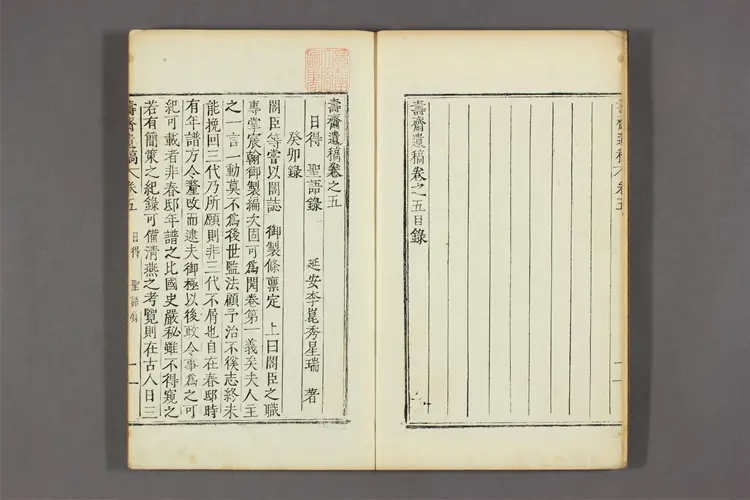 壽齋遺稿卷之五目錄
壽齋遺稿 卷五
壽齋遺稿卷之五
延安李崑秀星瑞 著
日得 聖語錄
癸卯錄
閣臣等嘗以閣誌 御製條稟定 上曰閣臣之職
專掌宸翰御製編次固可爲開卷第一義矣夫人主
之一言一動莫不爲後世監法顧予治不徯志終未
能挽回三代乃所願則非三代不屑也自在春邸時
有年譜方令釐改而逮夫御極以後政令事爲之可
紀可載者非春邸年譜之比國史嚴秘雖不得窺之
若有簡策之紀錄可備清燕之考覽則在古人日三
壽齋遺稿 卷五 日得 聖語錄 一